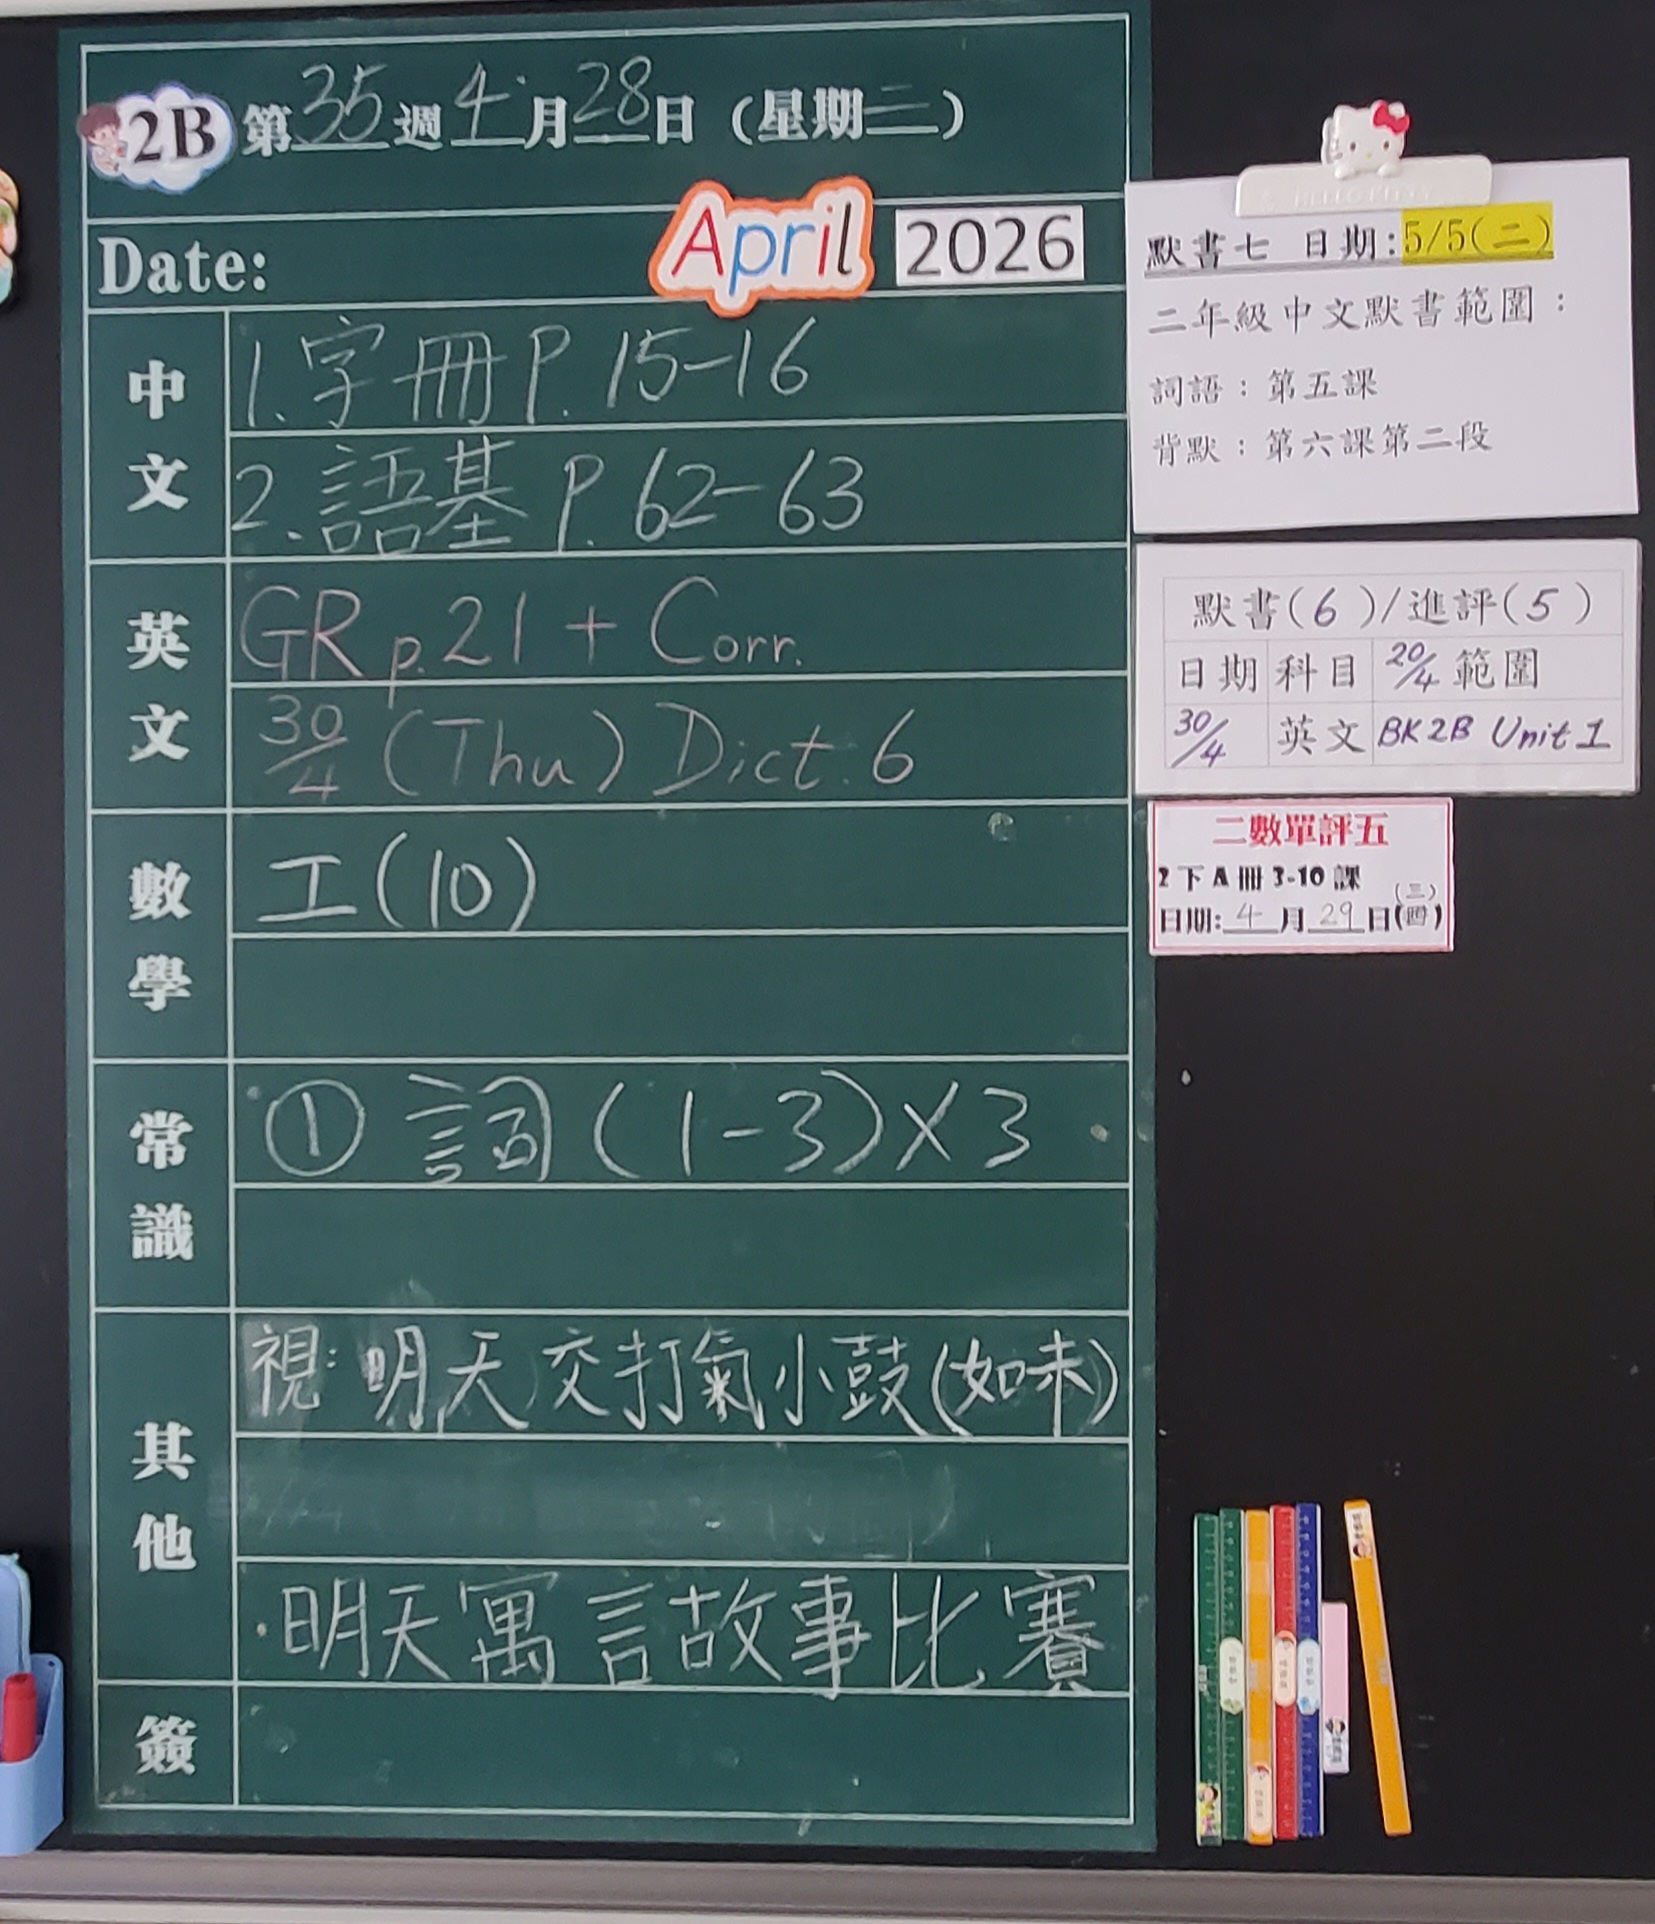 2B 第35週4月28日（星期二）
Date: April 2026
中文
1.字冊P.15-16
2.語基P.62-63
英文
GR p.21 + Corr.
30/4 (Thu) Dict. 6
數學
工(10)
常識
① 詞(1-3)×3
其他
視：明天交打氣小鼓(如未)
·明天寓言故事比賽
簽
默書七 日期:5/5(二)
二年級中文默書範圍：
詞語：第五課
背默：第六課第二段
默書(6)/進評(5)
日期 科目 20/4 範圍
30/4 英文 BK2B Unit 1
二數單評五
2下A冊3-10課
(三)
日期:4月29日(四)